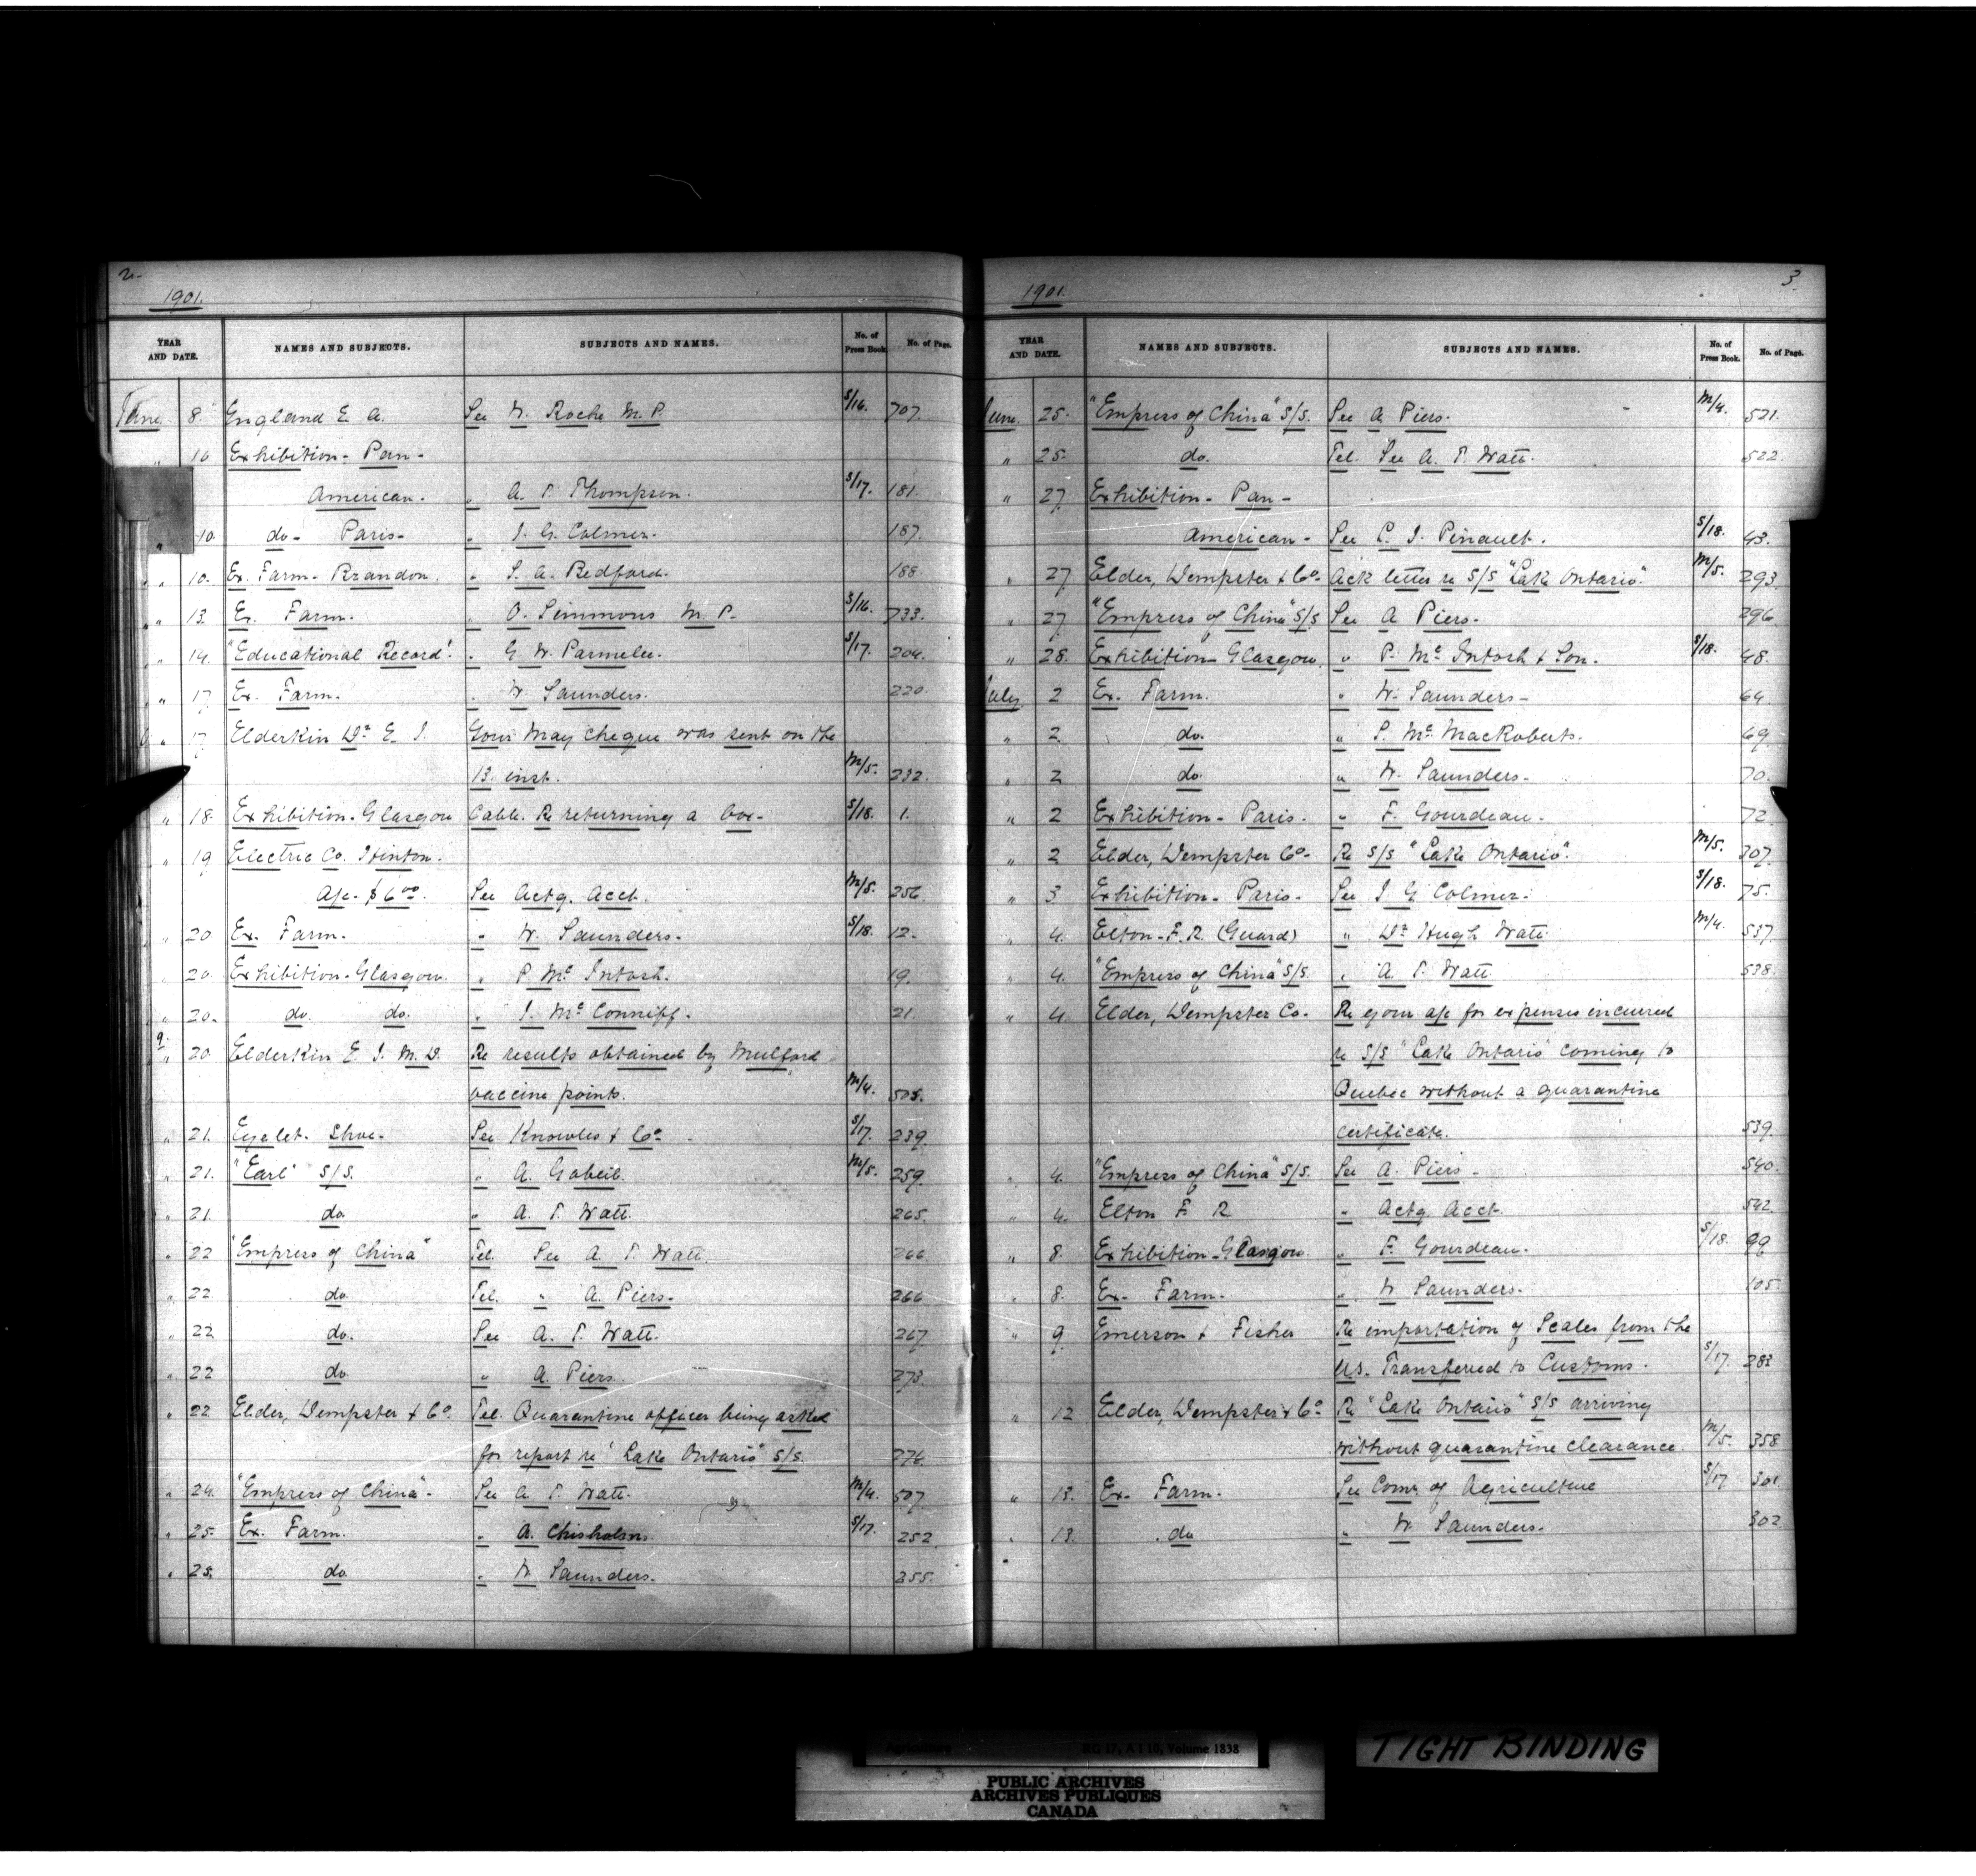 2
1901.
YEAR AND DATE. NAMES AND SUBJECTS. SUBJECTS AND NAMES. No. of Press Book. No. of Page.
June 8. England E. A. See W. Roche M. P. S/16. 707.
" 10 Exhibition - Pan-
American. " A. P. Thompson. S/17. 181.
" 10. do - Paris - " J. G. Colmer. 187.
" 10. Ex. Farm - Brandon. " S. A. Bedford. 188.
" 13. Ex. Farm. " O. Simmons M. P. S/16. 733.
" 14. "Educational Record". " G. W. Parmelee. S/17. 204.
" 17. Ex. Farm. " W. Saunders. 220.
" 17. Elderkin Dr. E. J. Your May cheque was sent on the
13. inst. M/5. 232.
" 18. Exhibition - Glasgow Cable. Re returning a box - S/18. 1.
" 19 Electric Co. Hinton.
A/c. $6.00. See Actg. Acct. M/5. 256.
" 20. Ex. Farm. " W. Saunders. S/18. 12.
" 20. Exhibition - Glasgow. " P. McIntosh. 19.
" 20. do. do. " J. McConniff. 21.
" 20 Elderkin E. J. M. D. Re results obtained by Mulford
vaccine points. M/4. 505.
" 21. Eyelet. Shoe. See Knowles & Co. S/17. 239.
" 21. "Earl" S/S. " A. Gobeil. M/5. 259.
" 21. do. " A. P. Watt. 265.
" 22 "Empress of China" Tel. See A. P. Watt. 266.
" 22. do. Tel. " A. Piers. 266
" 22 do. See A. P. Watt. 267
" 22 do. " A. Piers. 273
" 22 Elder, Dempster & Co. Tel. Quarantine officer being asked
for report re "Lake Ontario" S/S. 276.
" 24. "Empress of China". See A. P. Watt. M/4. 507
" 25. Ex. Farm. " A. Chisholm. S/17. 252
" 25. do. " W. Saunders. 255.
3.
1901.
YEAR AND DATE. NAMES AND SUBJECTS. SUBJECTS AND NAMES. No. of Press Book. No. of Page.
June 25. "Empress of China" S/S. See A. Piers. M/4. 521.
" 25. do. Tel. See A. P. Watt. 522.
" 27 Exhibition - Pan -
American - See L. J. Pinault. S/18. 43.
" 27 Elder, Dempster & Co. Ack letter re S/S "Lake Ontario". M/5. 293
" 27 "Empress of China" S/S See A. Piers. 296.
" 28. Exhibition - Glasgow. " P. McIntosh & Son. S/18. 48.
July 2 Ex. Farm. " W. Saunders - 64.
" 2. do. " P. Mc. MacRoberts. 69.
" 2 do. " W. Saunders - 70.
" 2 Exhibition - Paris. " F. Gourdeau. 72.
" 2 Elder, Dempster Co. Re S/S "Lake Ontario". M/5. 307.
" 3 Exhibition - Paris. See J. G. Colmer. S/18. 75.
" 4. Elton - F. R. (Guard) " Dr. Hugh Watt M/4. 537
" 4. "Empress of China" S/S. " A. P. Watt 538.
" 4. Elder, Dempster Co. Re your a/c for expenses incurred
re S/S "Lake Ontario" coming to
Quebec without a quarantine
certificate. 539.
" 4. "Empress of China" S/S. See A. Piers - 540.
" 4. Elton F. R " Actg Acct. 542
" 8. Exhibition - Glasgow. " F. Gourdeau. S/18. 99
" 8. Ex. Farm. " W. Saunders. 105.
" 9. Emerson & Fisher Re importation of Scales from the
U.S. Transferred to Customs. S/17. 283
" 12 Elder, Dempster & Co. Re "Lake Ontario" S/S arriving
without quarantine clearance. M/5. 358
" 13. Ex. Farm. See Comr. of Agriculture S/17 301.
" 13. do " W. Saunders. 302
Agriculture RG 17, A I 10, Volume 1838
PUBLIC ARCHIVES
ARCHIVES PUBLIQUES
CANADA
TIGHT BINDING